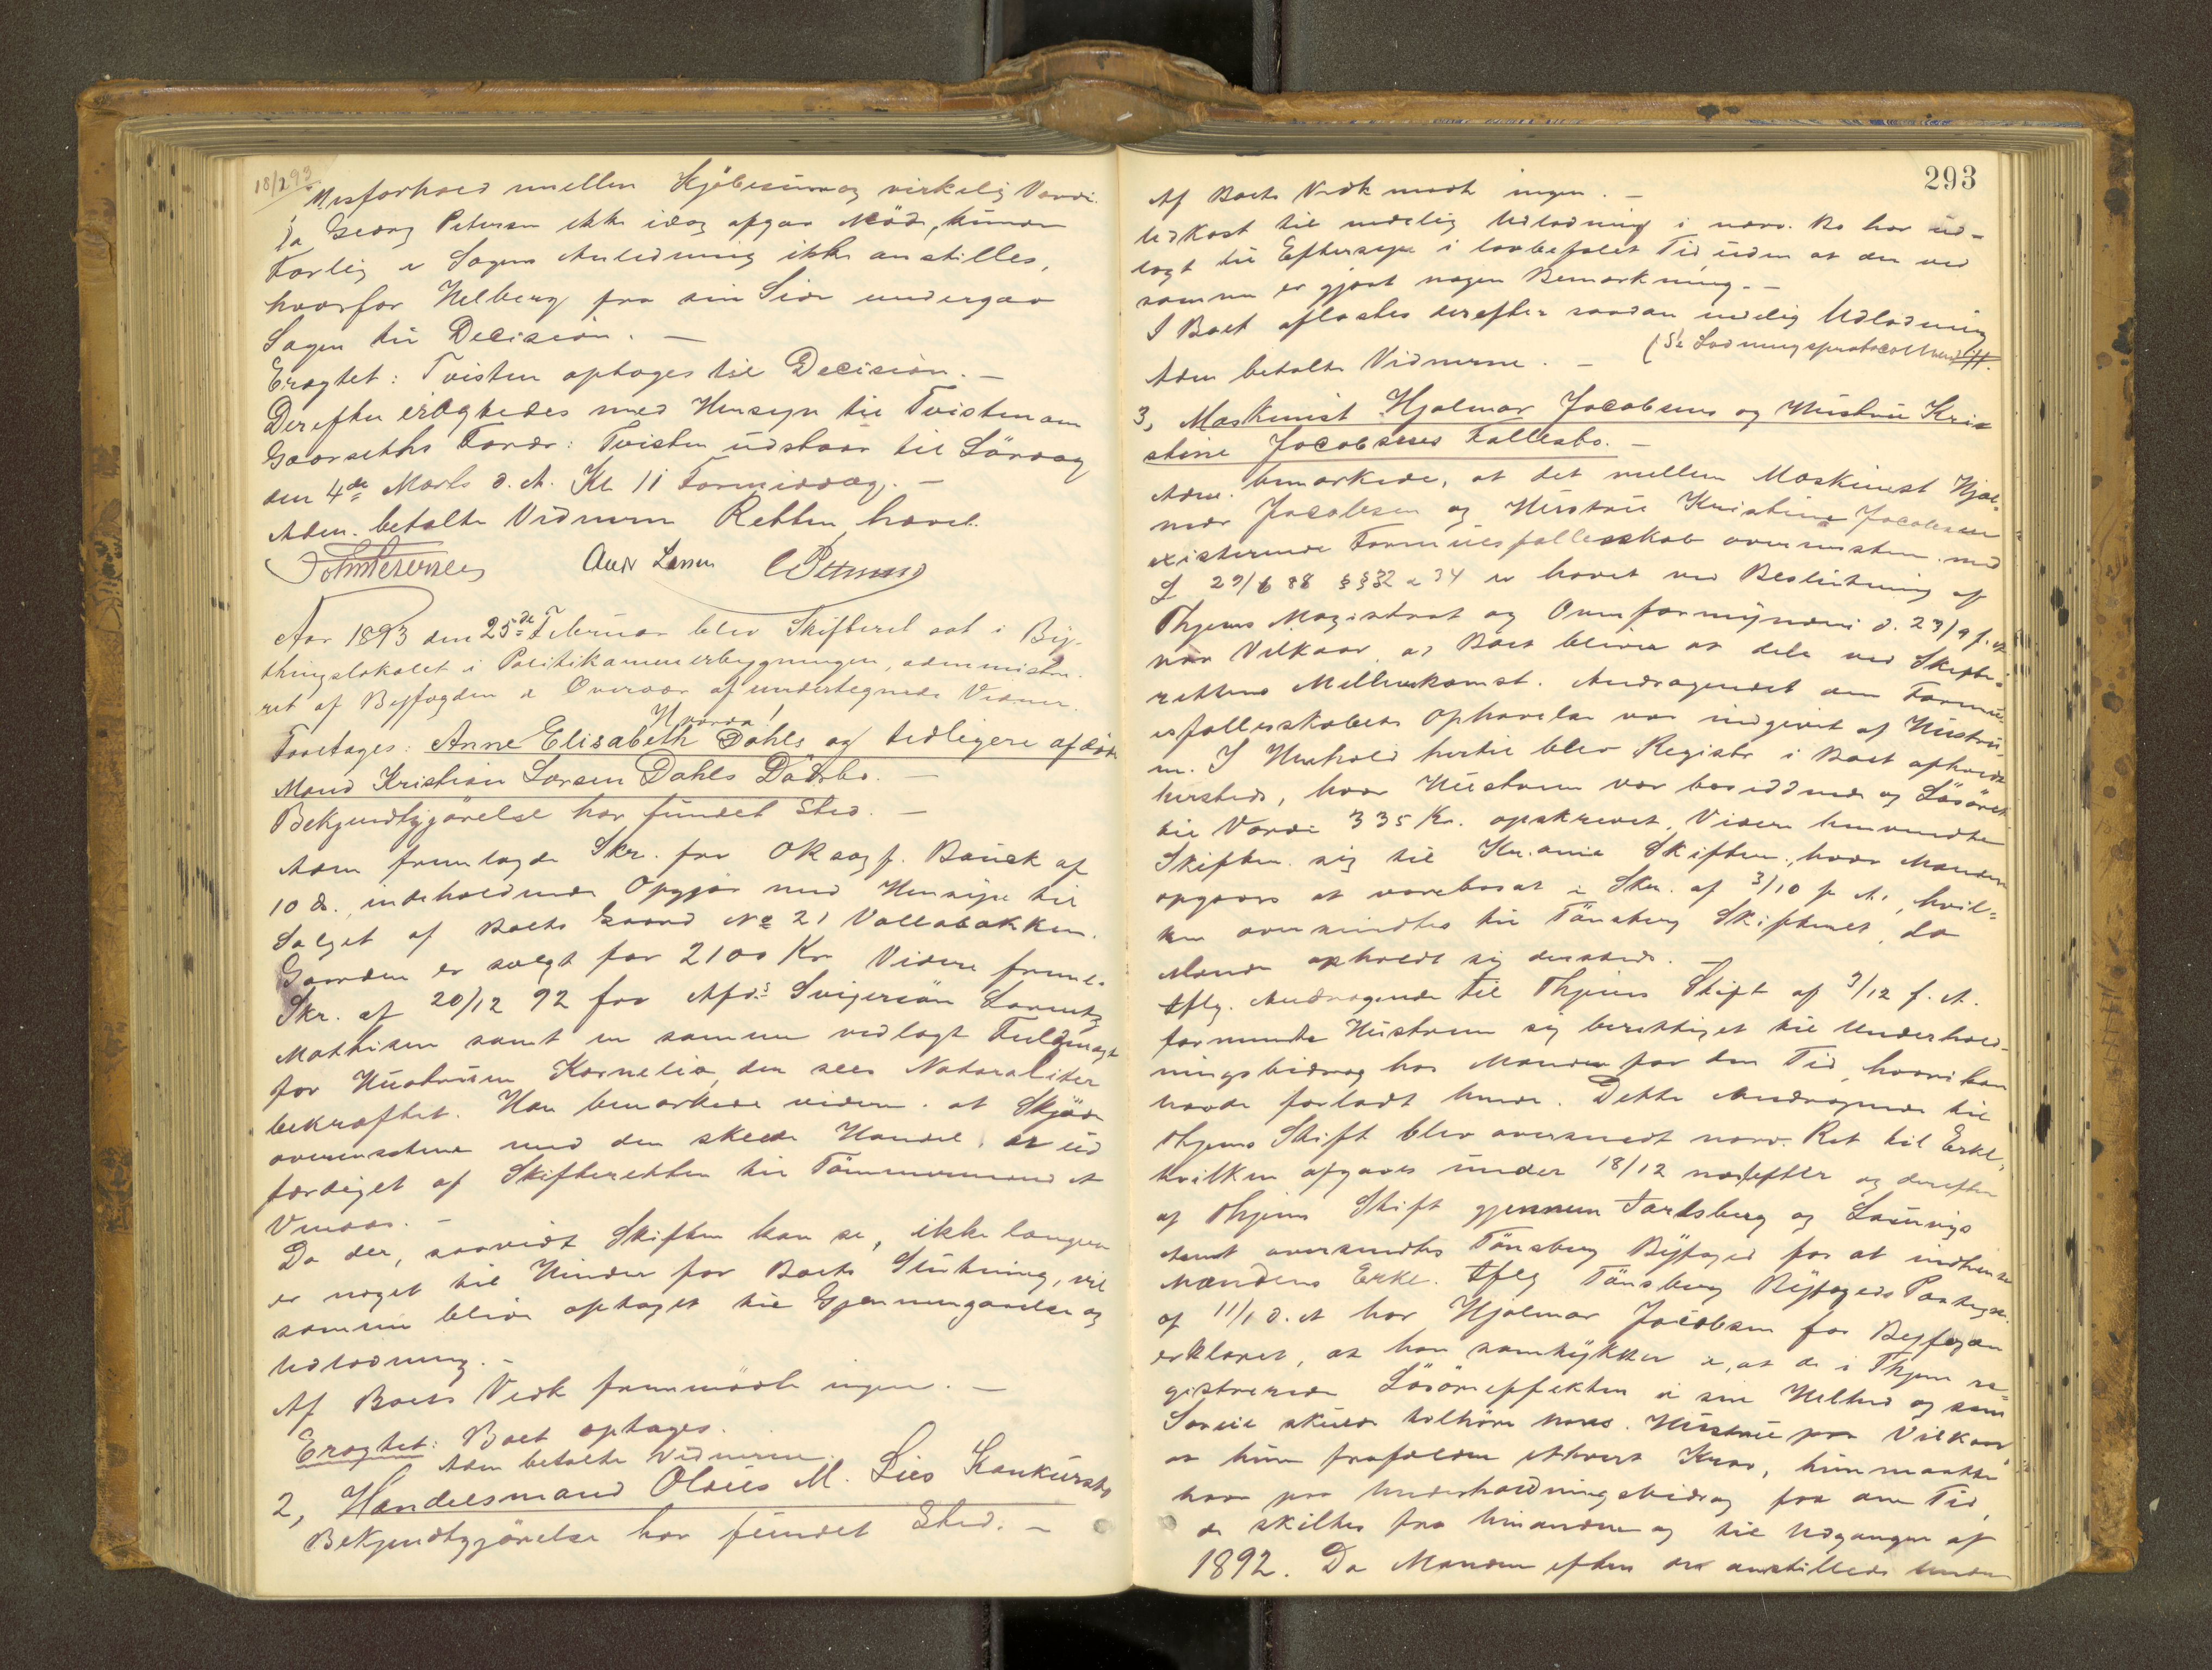 18/2 93
Misforhold mellem Kjöbesum og virkelig Værdi.
Da Georg Petersen ikke idag afgav Möde, kunde
Forlig i Sagens Anledning ikke anstilles,
hvorfor Helberg fra sin Side undergav
Sagen til Decision. —
Eragtet: Tvisten optages til Decision. —
Derefter eragtedes med Hensyn til Tvisten om
Fordr: Tvisten udstaar til Lördag
den 4de Marts d. A. Kl 11 Formiddag. —
Adm. betalte Vidnerne Retten hævet.
Aar 1893 den 25de Februar blev Skifteret sat i By-
thingslokalet i Politikammerbygningen, administre-
ret af Byfogden i Overvær af undertegnede Vidner.
Hvorda!
Foretages: Anne Elisabeth Dahls og tidligere afdöde
Mand Kristian Larsen Dahls Dödsbo. —
Bekjendtgjörelse har fundet Sted. —
Adm fremlagde Skr. fra O.R.sagf. Bauck af
10 ds., indeholdende Opgjör med Hensyn til
Salget af Boets Gaard No 21 Vollabakken.
Gaarden er solgt for 2100 Kr. Videre freml.
Skr. af 20/12 92 fra Afdes Svigersön Lorentz
Mathisen samt en samme vedlagt Fuldmagt
for Hustruen Kornelia, den sees Notarialiter
bekræftet. Han bemærkede videre at Skjöde
overensstem med den skeede Handel er ud
færdiget af Skifteretten til Tömmermand A
Da der, saavidt Skiften kan se, ikke længere
er noget til Hinder for Boets Slutning, vil
samme blive optaget til Gjennemgaaelse og
Udlodning. —
Af Boets Vedk fremmödte ingen. —
Eragtet: Boet optages.
Adm betalte Vidnerne
2, Handelsmand Olaus M. Lies Konkursbo
Bekjendtgjörelse har fundet Sted. —
293
Af Boets Vedk mödte ingen. —
Udkast til endelig Udlodning i nærv. Bo har ud-
lagt til Eftersyn i lovbefalet Tid uden at der ved
samme er gjort nogen Bemærkning. —
I Boet aflastes derefter saadan endelig Udlodning
(Se Lodningsprotocollen
Adm betalte Vidnerne. —
3, Maskinist Hjalmar Jacobsens og Hustru Kri-
stine Jacobsens Fællesbo. —
Adm. bemærkede, at det mellem Maskinist Hjal-
mar Jacobsen og Hustru Kristine Jacobsen
existerende Formuesfællesskab overensstem. med
L 29/6 88 §§ 32 & 34 er hævet ved Beslutning af
Thjems Magistrat og Overformynderi d. 23/9 f. A
paa Vilkaar, at Boet bliver at dele ved Skifte-
rettens Mellemkomst. Andragendet om Formu-
esfællesskabets Ophævelse var indgivet af Hustru-
en. I Henhold hertil blev Registr i Boet afholdt
hersteds, hvor Hustruen var bosiddende og Lösöret
til Værdi 335 Kr. opskrevet. Videre henvendte
Skiften sig til Kr.ania Skiften., hvor Manden
opgaves at være bosat i Skr. af 3/10 f. A., hvil-
ken oversendtes til Tönsberg Skifteret, da
Manden opholdt sig dersteds. —
Iflg. Andragende til Thjems Skift af 3/12 f. A.
formente Hustruen sig berettiget til Underhold-
ningsbidrag hos Manden for den Tid, hvori han
havde forladt hende. Dette Andragende til
Thjems Skift blev oversendt nærv. Ret til Erkl.,
hvilken afgaves under 18/12 næstefter og derefter
af Thjems Skift gjennem Jarlsberg og Laurvigs
Amt oversendtes Tönsberg Byfoged for at indhente
Mandens Erkl. Iflg Tönsberg Byfogeds Paategn.
af 11/1 d. A har Hjalmar Jacobsen for Byfogden
erklæret, at han samtykker i, at de i Thjem re-
gistrerede Lösöreeffekter i sin Helhed og som
Særeie skulde tilhöre hans Hustru paa Vilkaar
at hun frafalder ethvert Krav, hun maatte
have paa Underholdningsbidrag fra den Tid,
de skiltes fra hinanden og til Udgangen af
1892. Da Manden efter det anstillede